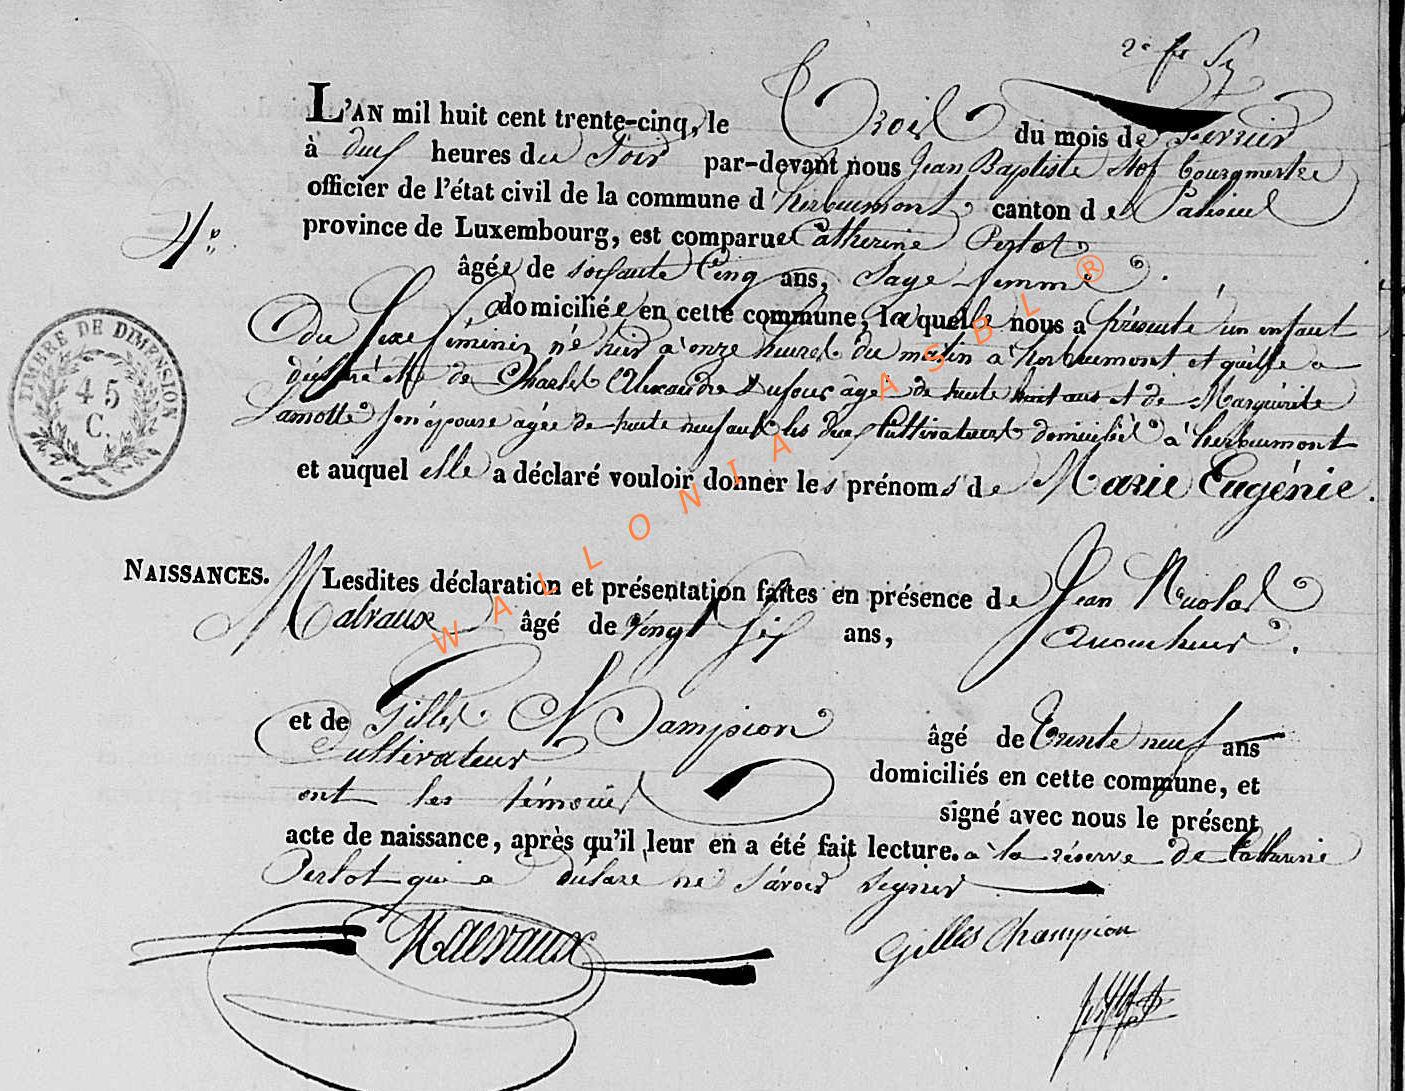 2e
L'AN mil huit cent trente-cinq, le Trois du mois de Fevrier
à deux heures du Soir par-devant nous Jean Baptiste bourgmestre
officier de l'état civil de la commune d'herbeumont canton de Paliseul
4e
province de Luxembourg, est comparue Catherine Perlot
âgée de soixante Cinq ans, Sage femme
domiciliée en cette commune, laquelle nous a présenté un enfant
du sexe féminin né hier à onze heures du matin à herbeumont et qu'elle a
déclaré être de Charles Alexandre Dufour âgé de trente huit ans et de Marguerite
Lamotte son épouse agée de trente neuf ans les deux Cultivateurs domiciliés à herbeumont
et auquel elle a déclaré vouloir donner les prénoms de Marie Eugénie.
TIMBRE DE DIMENSION
45
C.
NAISSANCES.
Lesdites déclaration et présentation faites en présence de Jean Nicolas
Malvaux âgé de Vingt six ans, Accoucheur.
et de Gilles Champion âgé de Trente neuf ans
Cultivateur domiciliés en cette commune, et
ont les témoins signé avec nous le présent
acte de naissance, après qu'il leur en a été fait lecture. à la réserve de Catherine
Perlot qui a déclaré ne savoir signer
Malvaux
Gilles Champion
WALLONIA ASBL ®